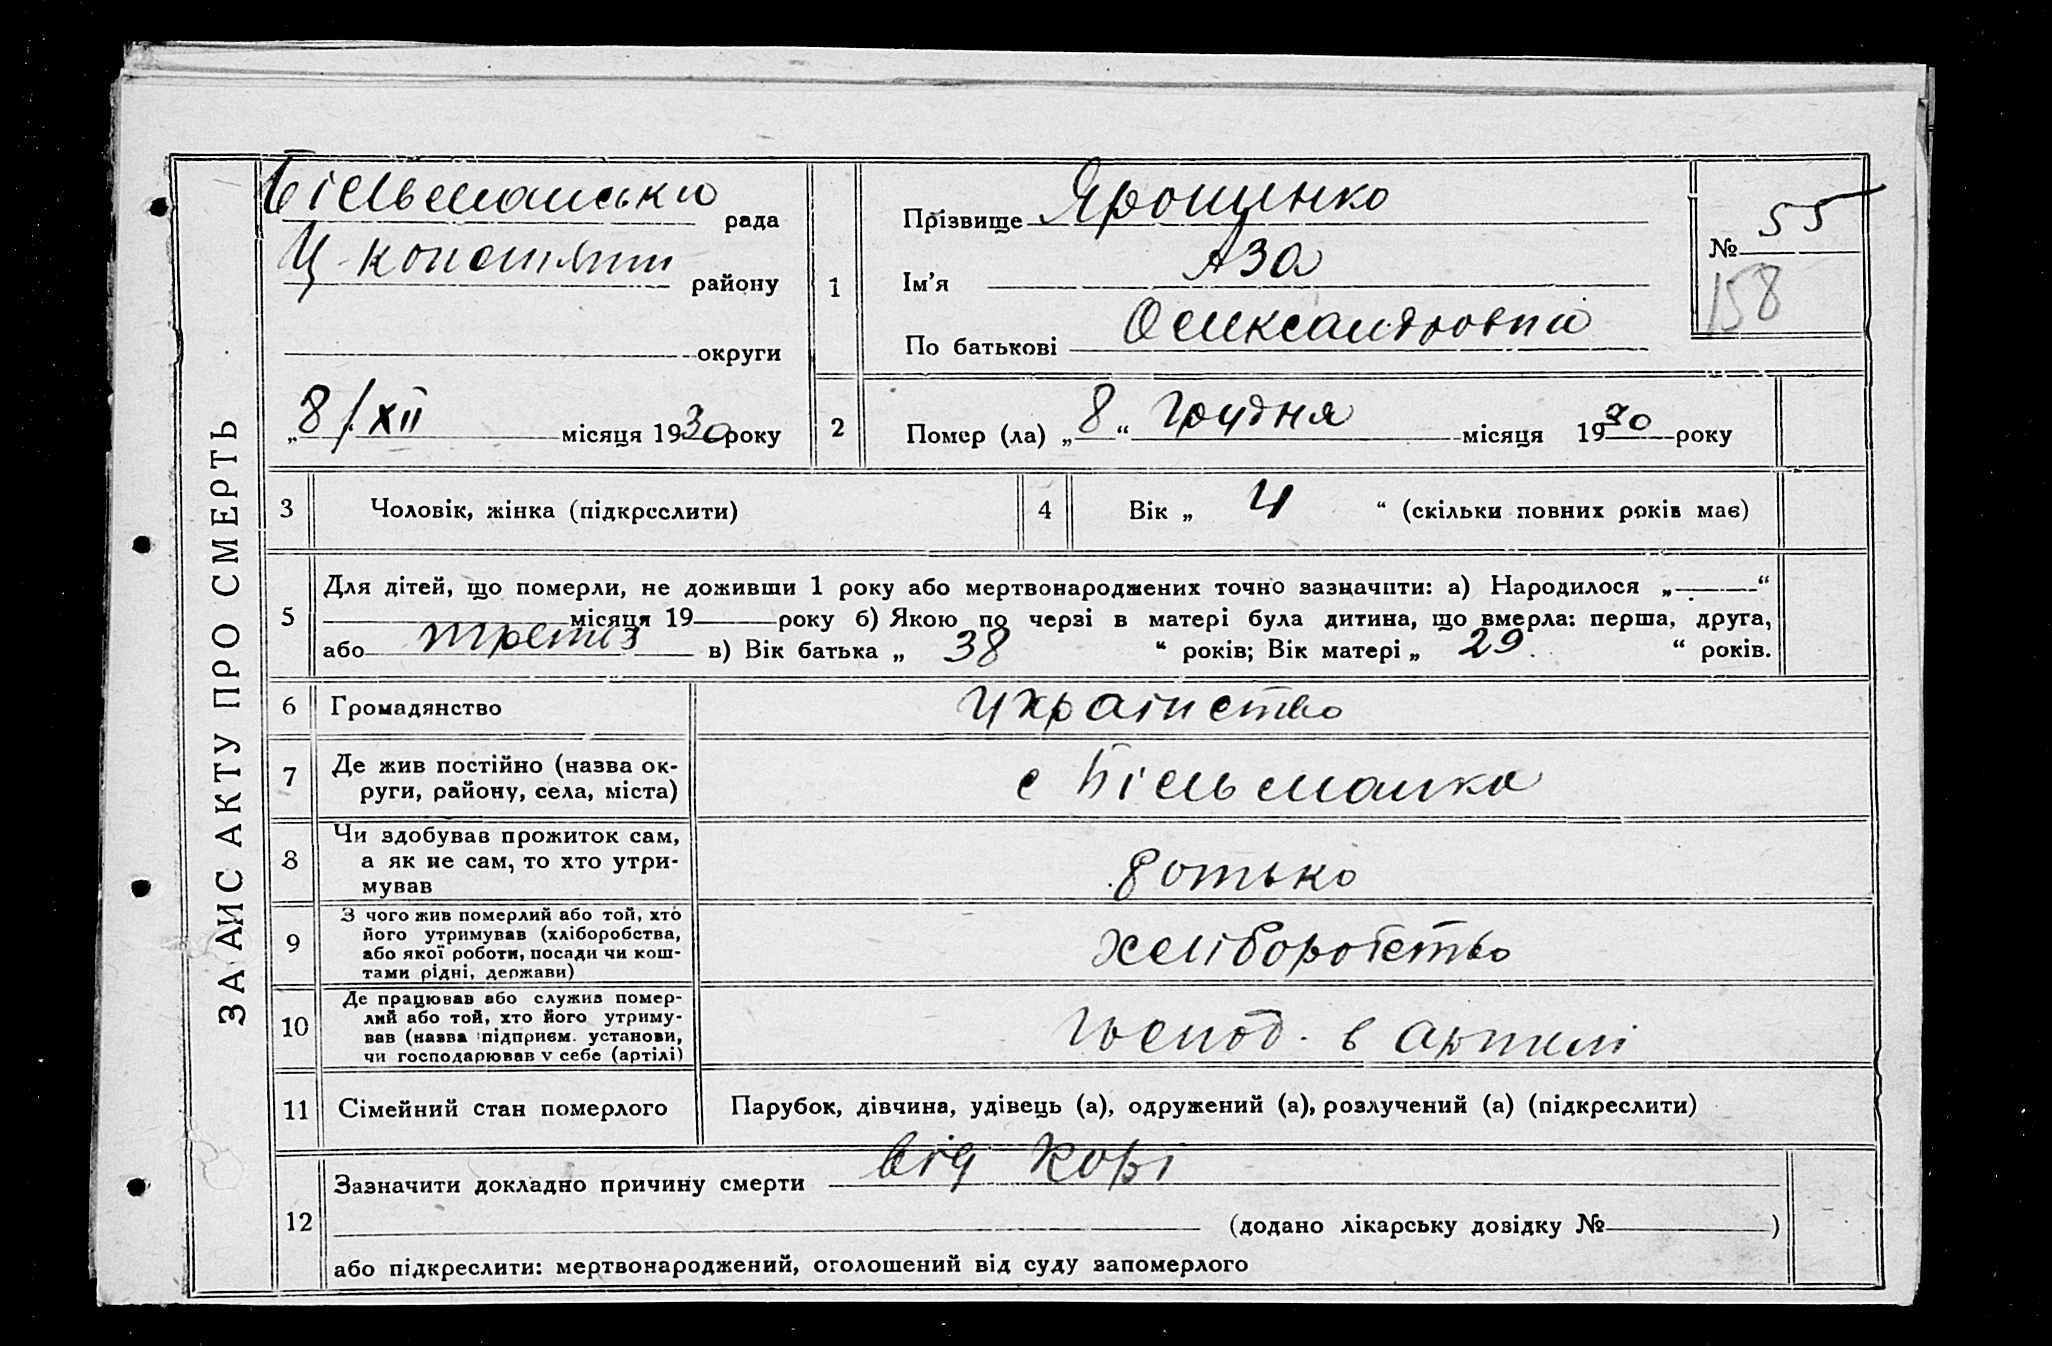 ЗАПИС АКТУ ПРО СМЕРТЬ
Більманська рада
Ц-констянт району
округи
„8/XII місяця 1930 року
1
Прізвище Ярошенко
Ім'я Аза
По батькові Олександровна
№ 55
158
2
Помер (ла) „8“ грудня місяця 1930 року
3
Чоловік, жінка (підкреслити)
4
Вік „ 4 “ (скільки повних років має)
5
Для дітей, що померли, не доживши 1 року або мертвонароджених точно зазначити: а) Народилося „ “
місяця 19 року б) Якою по черзі в матері була дитина, що вмерла: перша, друга,
або третя в) Вік батька „ 38 “ років; Вік матері „ 29 “ років.
6
Громадянство
Украінство
7
Де жив постійно (назва ок-
руги, району, села, міста)
с Більманка
8
Чи здобував прожиток сам,
а як не сам, то хто утри-
мував
батько
9
З чого жив померлий або той, хто
його утримував (хліборобства,
або якої роботи, посади чи кош-
тами рідні, держави)
хліборобство
10
Де працював або служив помер-
лий або той, хто його утриму-
вав (назва підприєм. установи,
чи господарював у себе (артілі)
господ. в артилі
11
Сімейний стан померлого
Парубок, дівчина, удівець (а), одружений (а), розлучений (а) (підкреслити)
12
Зазначити докладно причину смерти від Корі
(додано лікарську довідку № )
або підкреслити: мертвонароджений, оголошений від суду запомерлого